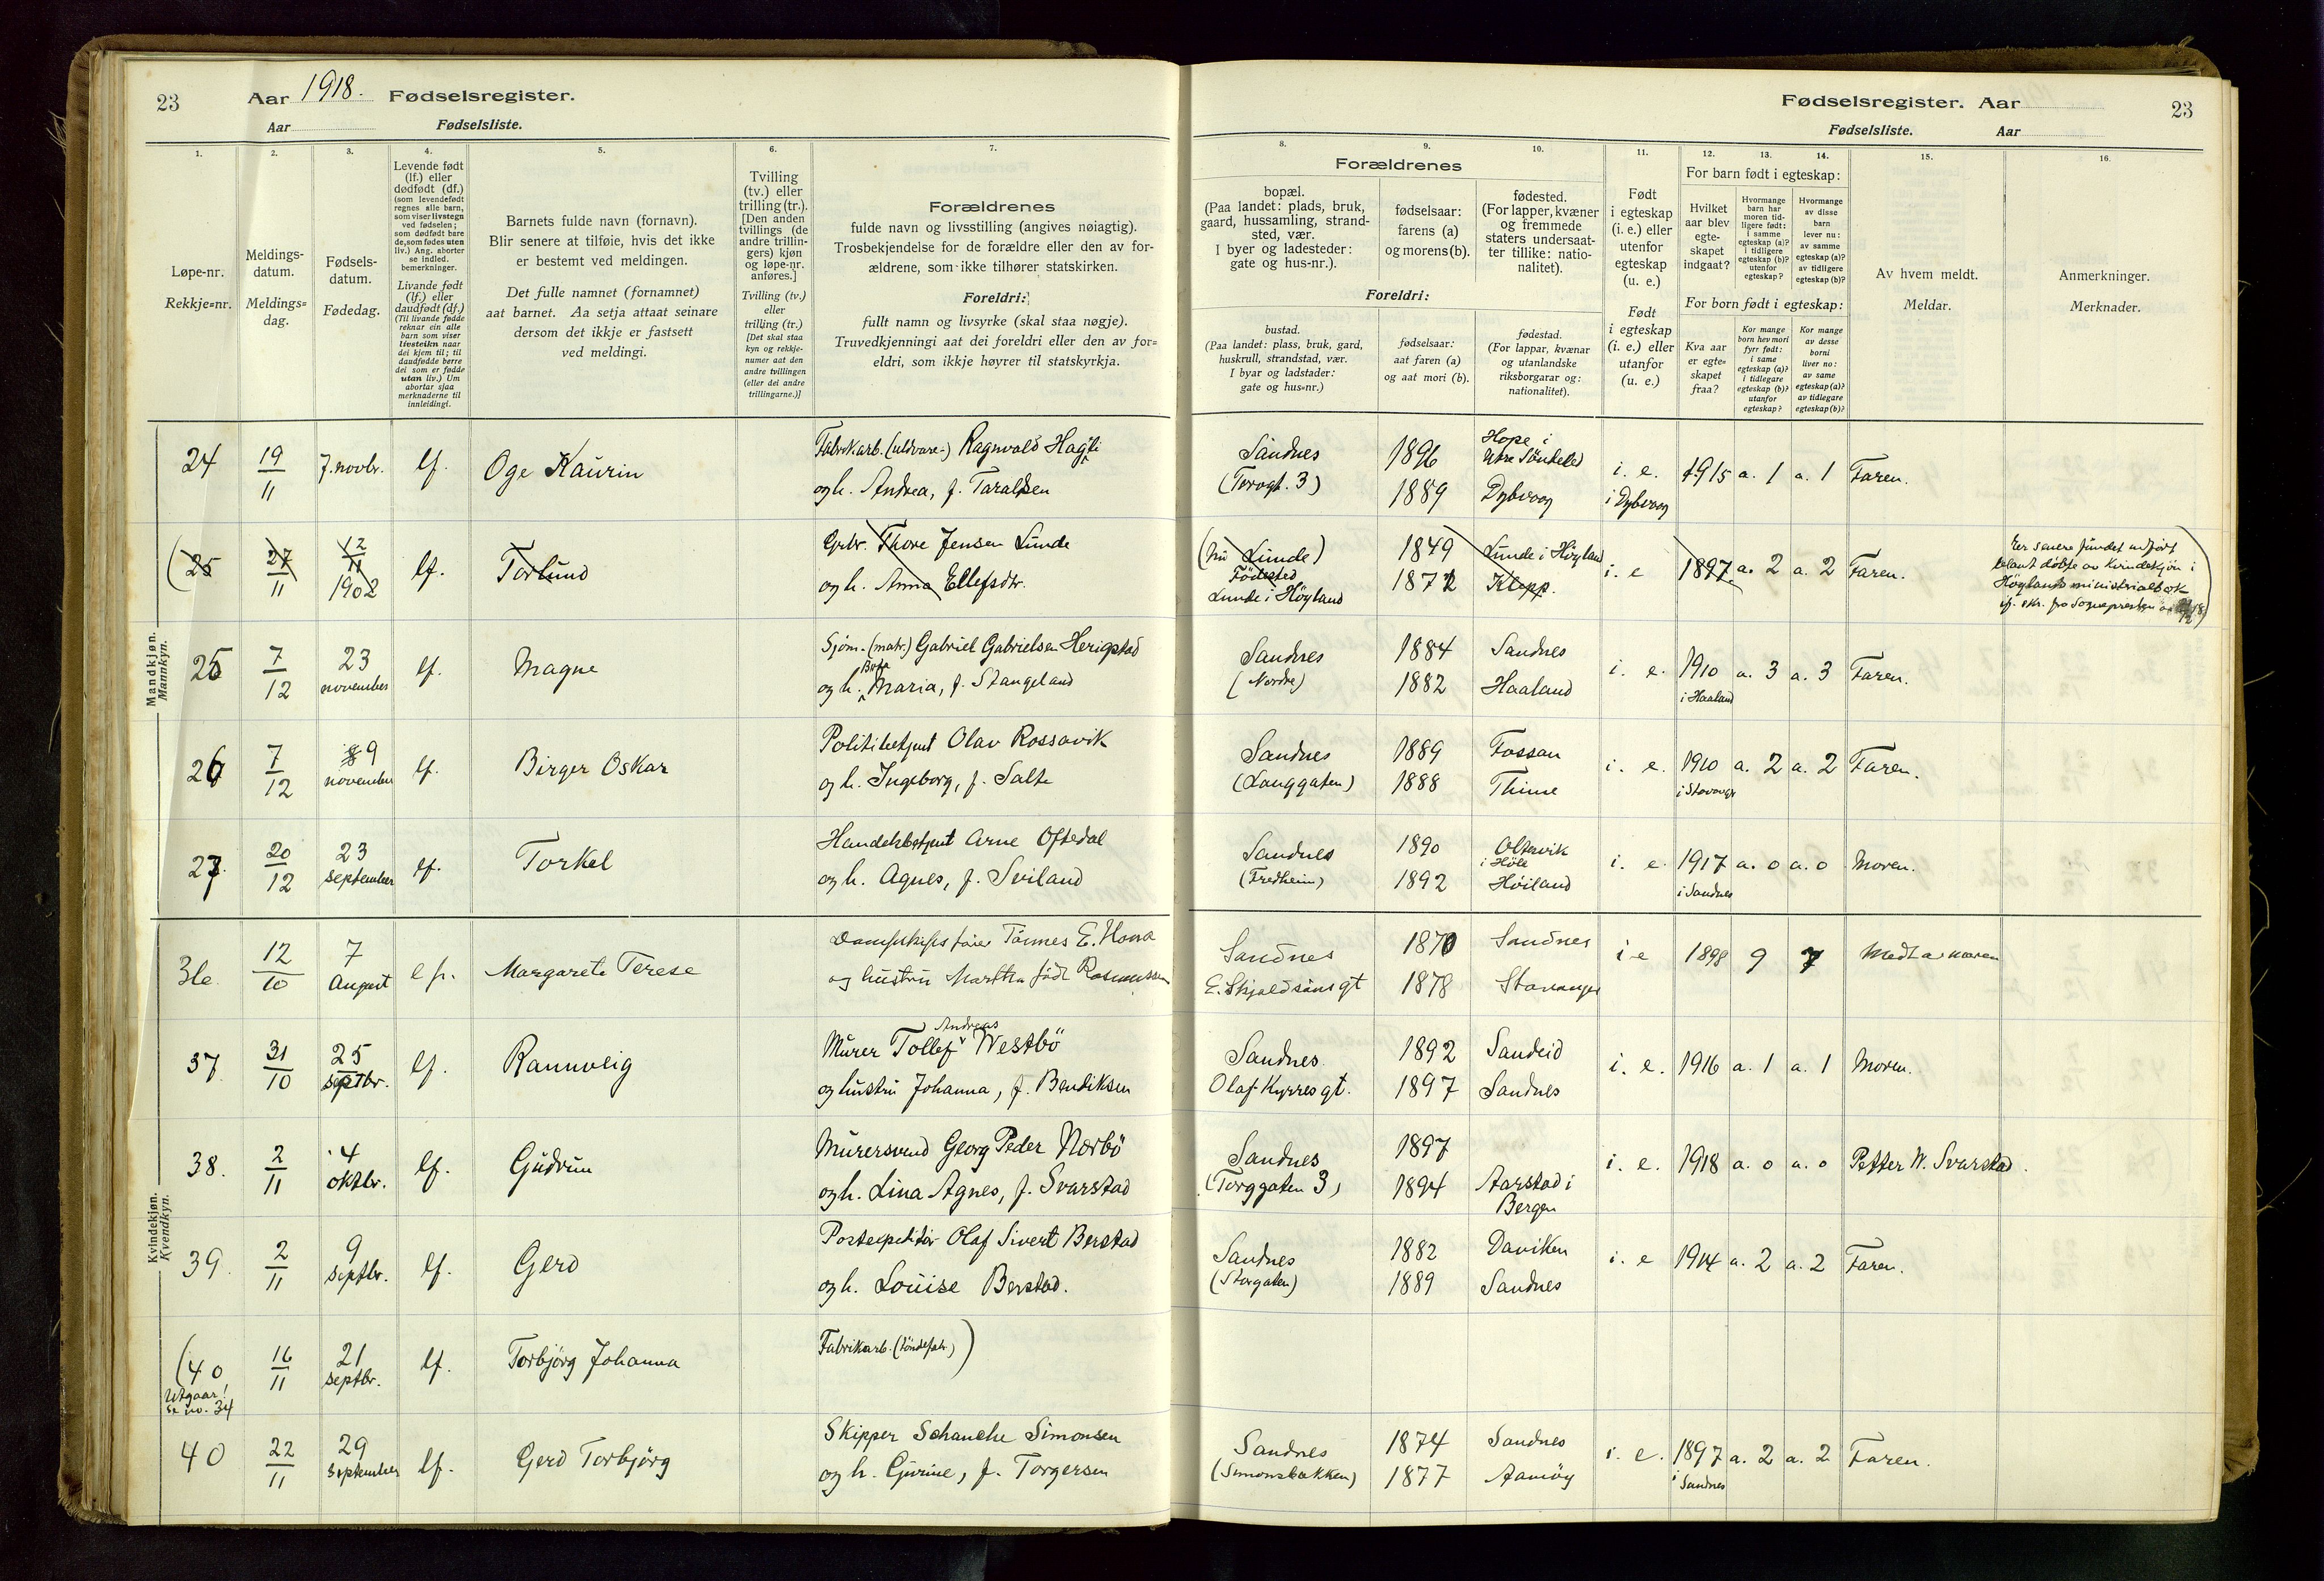 23
Aar 1918. Fødselsregister.
Aar Fødselsliste.
Fødselsregister. Aar
23
Fødselsliste. Aar
1.
Løpe-nr.
Rekkje=nr.
2.
Meldings-
datum.
Meldings=
dag.
3.
Fødsels-
datum.
Fødedag.
4.
Levende født
(lf.) eller
dødfødt (df.)
(som levendefødt
regnes alle barn,
som viser livstegn
ved fødselen;
som dødfødt bare
de, som fødes uten
liv.) Ang. aborter
se indled.
bemerkninger.
Livande født
(lf.) eller
daudfødt (df.)
(Til livande fødde
reknar ein alle
barn som viser
livsteikn naar
dei kjem til; til
daudfødde berre
dei som er fødde
utan liv.) Um
abortar sjaa
merknaderne til
innleidingi.
5.
Barnets fulde navn (fornavn).
Blir senere at tilføie, hvis det ikke
er bestemt ved meldingen.
Det fulle namnet (fornamnet)
aat barnet. Aa setja attaat seinare
dersom det ikkje er fastsett
ved meldingi.
6.
Tvilling
(tv.) eller
trilling (tr.).
[Den anden
tvillings (de
andre trillin-
gers) kjøn
og løpe-nr.
anføres.]
Tvilling (tv.)
eller
trilling (tr.)
[Det skal staa
kyn og rekkje-
numer aat den
andre tvillingen
(eller dei andre
trillingarne.)]
7.
Forældrenes
fulde navn og livsstilling (angives nøiagtig).
Trosbekjendelse for de forældre eller den av for-
ældrene, som ikke tilhører statskirken.
Foreldri:
fullt namn og livsyrke (skal staa nøgje).
Truvedkjenningi aat dei foreldri eller den av for=
eldri, som ikkje høyrer til statskyrkja.
8. 9. 10.
Forældrenes
bopæl.
(Paa landet: plads, bruk,
gaard, hussamling, strand-
sted, vær.
I byer og ladesteder:
gate og hus-nr.).
fødselsaar:
farens (a)
og morens (b).
fødested.
(For lapper, kvæner
og fremmede
staters undersaat-
ter tillike: natio-
nalitet).
Foreldri:
bustad.
(Paa landet: plass, bruk, gard,
huskrull, strandstad, vær.
I byar og ladstader:
gate og hus=nr.)
fødselsaar:
aat faren (a)
og aat mori (b).
fødestad.
(For lappar, kvænar
og utanlandske
riksborgarar og:
nationalitet).
11.
Født
i egteskap
(i. e.) eller
utenfor
egteskap
(u. e.)
Født
i egteskap
(i. e.) eller
utanfor
(u. e.)
12. 13. 14.
For barn født i egteskap:
Hvilket
aar blev
egte-
skapet
indgaat?
Hvormange
barn har
moren tid-
ligere født:
i samme
egteskap (a)?
i tidligere
egteskap (b)?
utenfor
egteskap?
Hvormange
av disse
barn
lever nu:
av samme
egteskap (a)?
av tidligere
egteskap (b)?
For born født i egteskap:
Kva aar
er egte=
skapet
fraa?
Kor mange
born hev mori
fyrr født:
i same
egteskap (a)?
i tidlegare
egteskap (b)?
utanfor
egteskap?
Kor mange
av desse
borni
liver no:
av same
egteskap (a)?
av tidlegare
egteskap (b)?
15.
Av hvem meldt.
Meldar.
16.
Anmerkninger.
Merknader.
Mandkjøn.
Mannkyn.
24 19/11 7. novbr. lf. Oge Kaurin Fabrikarb. (uldvare-) Ragnvald Hagli
og h. Andrea, f. Taraldsen
Sandnes (Torvgt. 3) 1896 1889 Hope i Dybvaag i. e. i Dybvaag 1915 a. 1 a. 1 Faren.
(25 27/11 12/11 1902 lf. Torlund Grbr. Thore Jensen Lunde
og h. Anna Ellefsdtr.
(nu Lunde) Fødested Lunde i Høyland 1849 1872 Lunde i Høyland Klepp. i. e 1897 a. 2 a. 2 Faren.
Er senere fundet indført
blant døbte av kvindekjøn i
Høylands ministerialbok
if. skr. fra Sognepresten
25 7/12 23 november lf. Magne Sjøm. (matr.) Gabriel Gabrielsen Herigstad
og h. Maria, f. Stangeland
Sandnes (Nordre) 1884 1882 Sandnes Haaland i. e. 1910 i Haaland a. 3 a. 3 Faren.
26 7/12 9 november lf. Birger Oskar Politibetjent Olav Rossavik
og h. Ingeborg, f. Salte
Sandnes (Langgaten) 1889 1888 Fossan Thime i. e. 1910 i Stavanger a. 2 a. 2 Faren.
27. 20/12 23 september lf. Torkel Handelsbetjent Arne Oftedal
og h. Agnes, f. Sviland
Sandnes (Fredheim) 1890 1892 Oltesvik i Høle Høiland i. e. 1917 i Sandnes a. 0 a. 0 Moren.
Kvindekjøn.
Kvendkyn.
36 12/10 7 August lf. Margarete Terese Dampskibsfører Tønnes E. Hana
og hustru Martha født Rasmussen
Sandnes E. Skjeldsøns gt 1870 1878 Sandnes Stavanger i e 1898 9 7 Meldt av moren
37 31/10 25 septbr. lf. Rannveig Murer Tollef Andreas Westbö
og hustru Johanna, f. Bendiksen
Sandnes. Olaf Kyrres gt. 1892 1897 Sandeid Sandnes i. e. 1916 a. 1 a. 1 Moren.
38. 2/11 4 oktbr. lf. Gudrun Murersvend Georg Peder Nærbö
og h. Lina Agnes, f. Svarstad
Sandnes (Torggaten 3) 1897 1894 Aarstad i Bergen i. e. 1918 a. 0 a. 0 Petter W. Svarstad.
39. 2/11 9 septbr. lf. Gerd Postexpeditör Olaf Sivert Berstad
og h. Louise Berstad.
Sandnes (Storgaten) 1882 1889 Daviken Sandnes i. e 1914 a. 2 a. 2 Faren.
(40 16/11 21 septbr. lf. Torbjørg Johanna Fabrikarb. (tøndefabr.))
Utgaar!
se no. 34
40 22/11 29 september lf. Gerd Torbjørg Skipper Schanche Simonsen
og h. Gurine, f. Torgersen
Sandnes (Simonsbakken) 1874 1877 Sandnes Aamøy i. e. 1897 i Sandnes a. 2 a. 2 Faren.